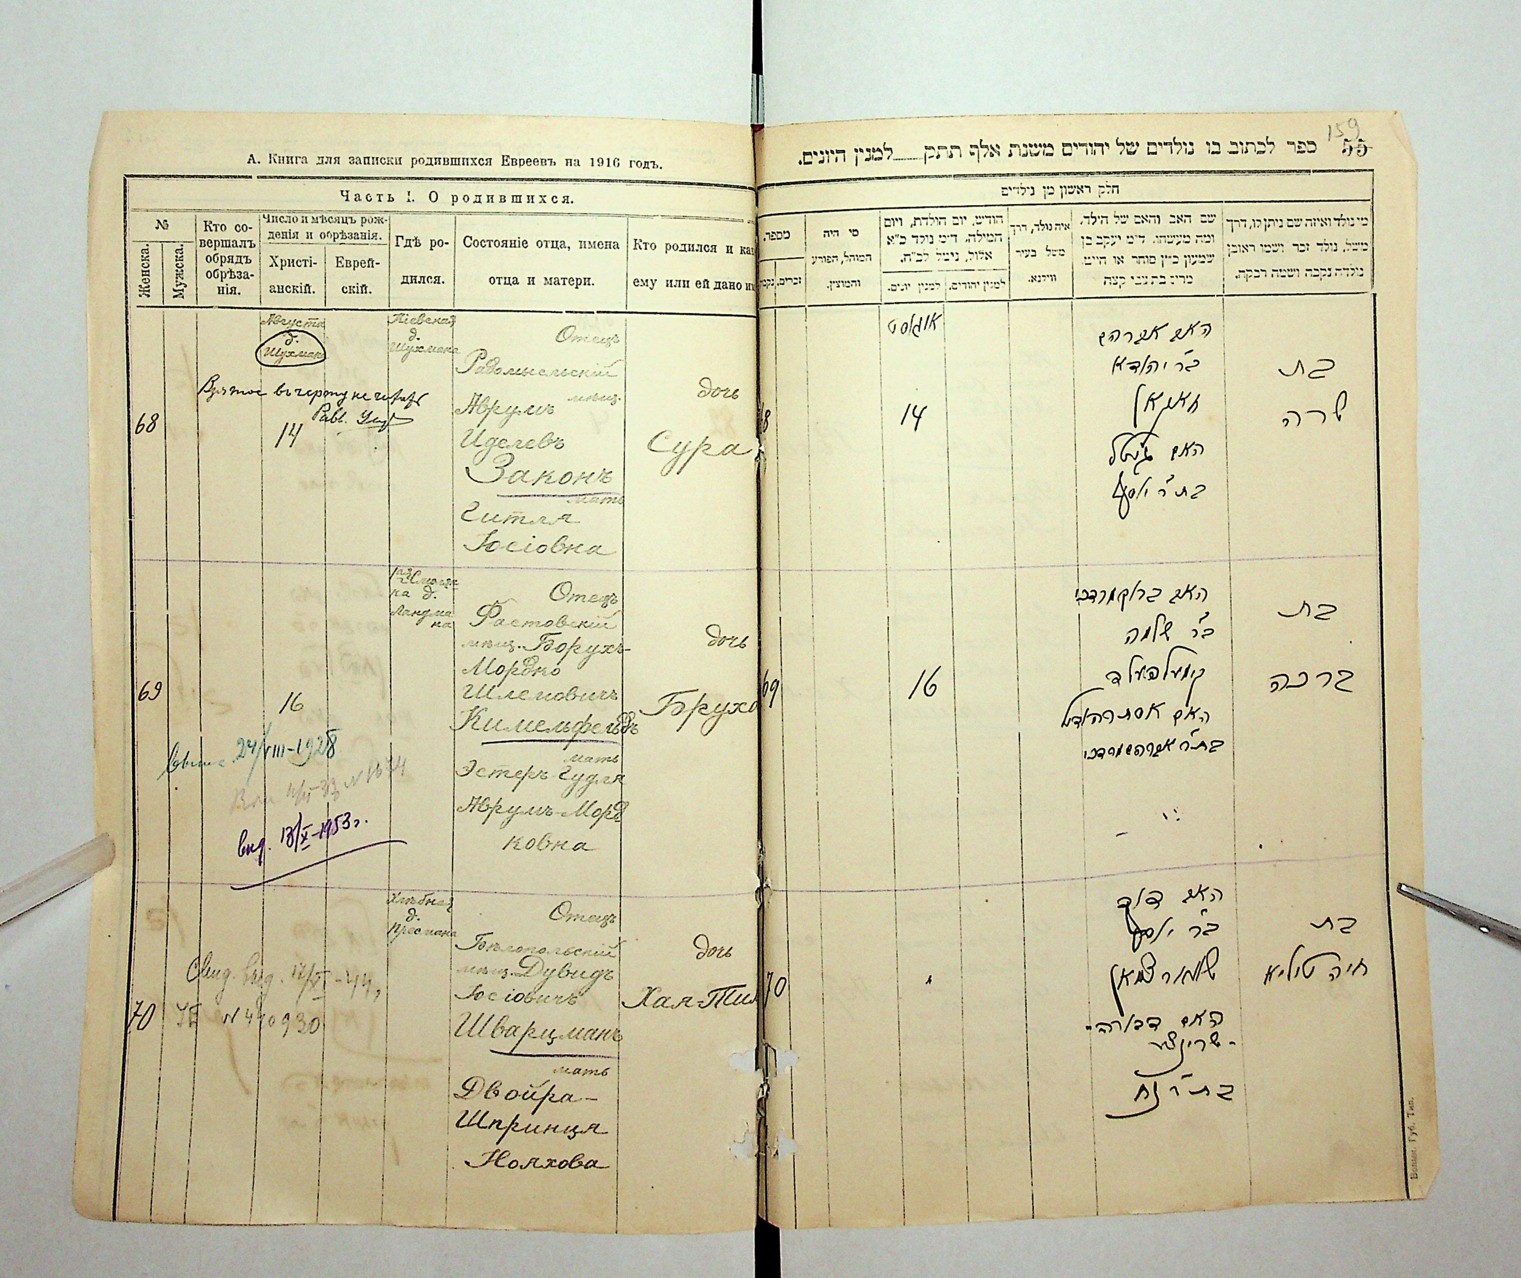 А. Книга для записки родившихся Евреевъ на 1916 годъ.
Часть I. О родившихся.
№
Женска.
Мужска.
Кто со-
вершалъ
обрядъ
обрѣза-
нія.
Число и мѣсяцъ рож-
денія и обрѣзанія.
Христі-
анскій.
Еврей-
скій.
Гдѣ ро-
дился.
Состояніе отца, имена
отца и матери.
Кто родился и как
ему или ей дано им
68
Августа
д.
Шухмана
14
Кіевская
д.
Шухмана
Отецъ
Радомысльскій
мѣщ.
Аврумъ
Иделевъ
Законъ
мать
Гитля
Іосіовна
дочь
Сура
69
16
Отецъ
Фастовскій
мѣщ. Борухъ-
Мордко
Шлемовичъ
Кимельфельдъ
мать
Эстеръ-Гудля
Аврумъ-Морд
ковна
дочь
Бруха
24/VIII-1928
вид. 13/X-1953г.
70
Хлѣбная
д.
Кресмана
Отецъ
Бѣлопольскій
мѣщ. Дувидъ
Іосіовичъ
Шварцманъ
мать
Двойра-
Шпринця
Нояхова
дочь
Хая-Тил
№ 440930
159
55
ספר לכתוב בו נולדים של יהודים משנת אלף תתק למנין היונים.
חלק ראשון מן נולדים
מספר.
זכרים.
מי היה
המוהל, הפורע
והמוצץ.
חודש, יום הולדת, ויום
המילה, ד״מ נולד כ״א
אלול, נימל לכ״ח.
למנין יונים.
למנין יהודים.
איה נולד, דרך
משל בעיר
ווילנא.
שם האב והאם של הילד,
ומה מעשהו. ד״מ יעקב בן
שמעון כ״ץ סוחר או חייט,
מרים בת צבי קצת
מי נולד ואיזה שם ניתן לו, דרך
משל, נולד זכר ושמו ראובן
נולדה נקבה ושמה רבקה.
אוגוסט
14
האב אברהם
ב״ר יהודא
זאקאן
האם גיטל
בת ר׳ יוסף
בת
שרה
69
16
האב ברוך מרדכי
ב״ר שלמה
קימעלפעלד
האם אסתר הודל
בת ר׳ אברהם מרדכי
בת
ברכה
70
האב דוד
ב״ר יוסף
שווארצמאן
האם דבורה-
-שרינצי
בת ר׳ נח
בת
חיה טיליא